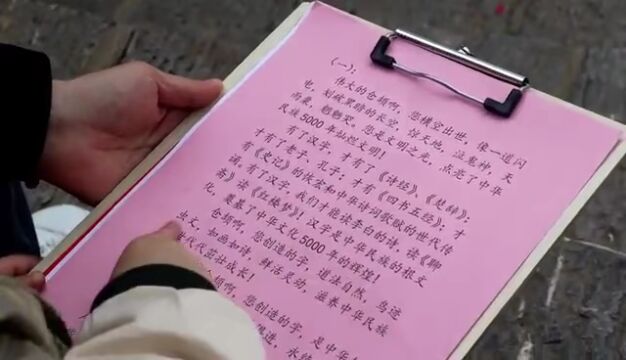 （一）：
伟大的仓颉啊，您横空出世，像一道闪
电，划破黑暗的长空，惊天地，泣鬼神，天
雨粟，魍魉哭。您是文明之光，点亮了中华
民族5000年灿烂文明！
有了汉字，才有了《诗经》、《楚辞》；
才有了老子、孔子；才有《四书五经》；才
有《史记》的恢宏和中华诗词歌赋的世代传
诵。有了汉字，我们才能读李白的诗，读《聊
斋》读《红楼梦》！汉字是中华民族的根文
化，奠基了中华文化5000年的辉煌！
仓颉啊，您创造的字，道法自然，鸟迹
虫文，如画如诗，鲜活灵动，滋养中华民族
世代代茁壮成长！
颉啊，您创造的字，是中华
水